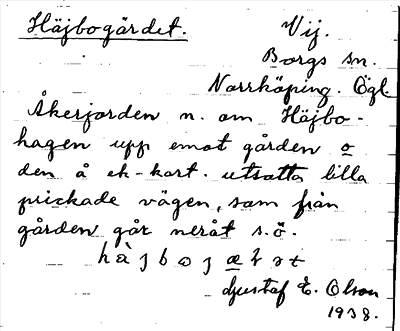 Häjbogärdet. Vij.
Borgs sn.
Norrköping. Ögl.
Åkerjorden n. om Häjbo-
hagen upp emot gården o
den å ek-kart. utsatta lilla
prickade vägen, som från
gården går neråt s.ö.
Gustaf E. Olson
1938.